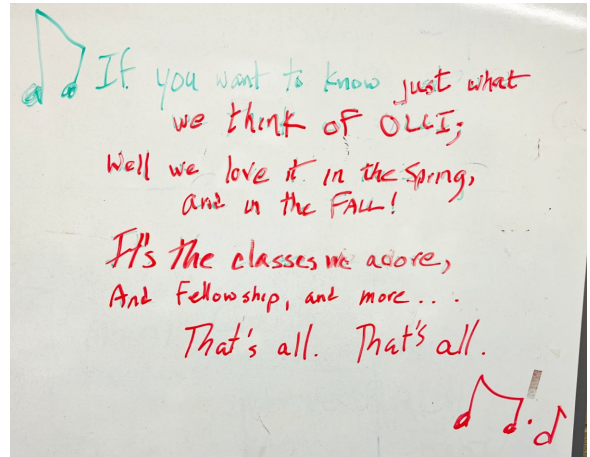 If you want to know just what
we think of OLLI;
Well we love it in the Spring,
and in the FALL!
It's the classes we adore,
And Fellowship, and more....
That's all. That's all.